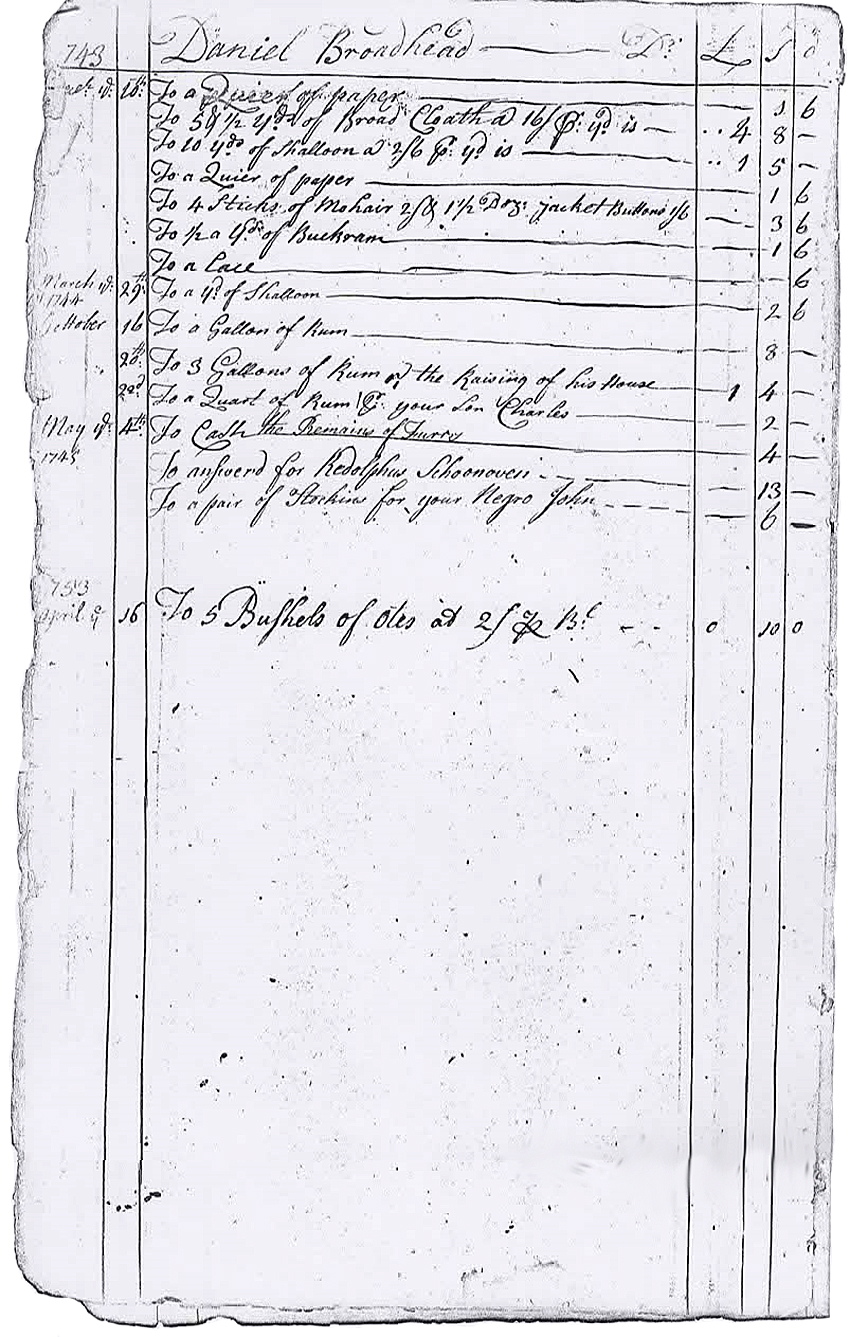 743 Daniel Broadhead Dr £ S d
16th To a Quier of paper 1 6
To 5 & 1/2 yds of Broad Cloath a 16/ P: yd is 4 8 -
To 10 yds of Shalloon a 2/6 P: yd is 1 5 -
To a Quier of paper 1 6
To 4 Sticks of Mohair 2/ & 1 1/2 Doz: Jacket Buttons 1/6 3 6
To 1/2 a yd of Buckram 1 6
To a Lace 6
March ye 29th To a yd of Shalloon 2 6
1744
October 16 To a Gallon of Rum 8 -
20th To 3 Gallons of Rum at the Raising of his House 1 4 -
22d To a Quart of Rum P: your Son Charles 2 -
May ye 4th To Cash the Remains of Furrs 4 -
1745
To answerd for Redolphus Schoonoven 13 -
To a pair of Stockins for your Negro John 6 -
753
April ye 16 To 5 Bushels of Otes at 2/ P Bl 0 10 0